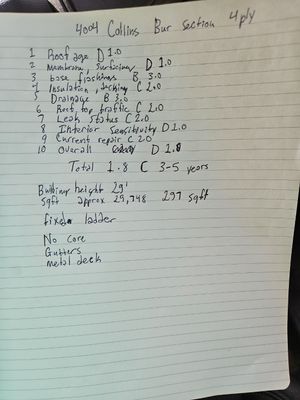 4004 Collins Bur Section 4 ply
1 Roof age D 1.0
2 Membrane, Surfacing D 1.0
3 base flashings B, 3.0
4 Insulation, decking C 2.0
5 Drainage B 3.0
6 Roof top traffic C 2.0
7 Leak status C 2.0
8 Interior Sensitivity D 1.0
9 Current repair C 2.0
10 Overall D 1.8
Total 1.8 C 3-5 years
Building height 29'
Sqft approx 29,748 297 sqft
fixed ladder
No core
Gutters
metal deck